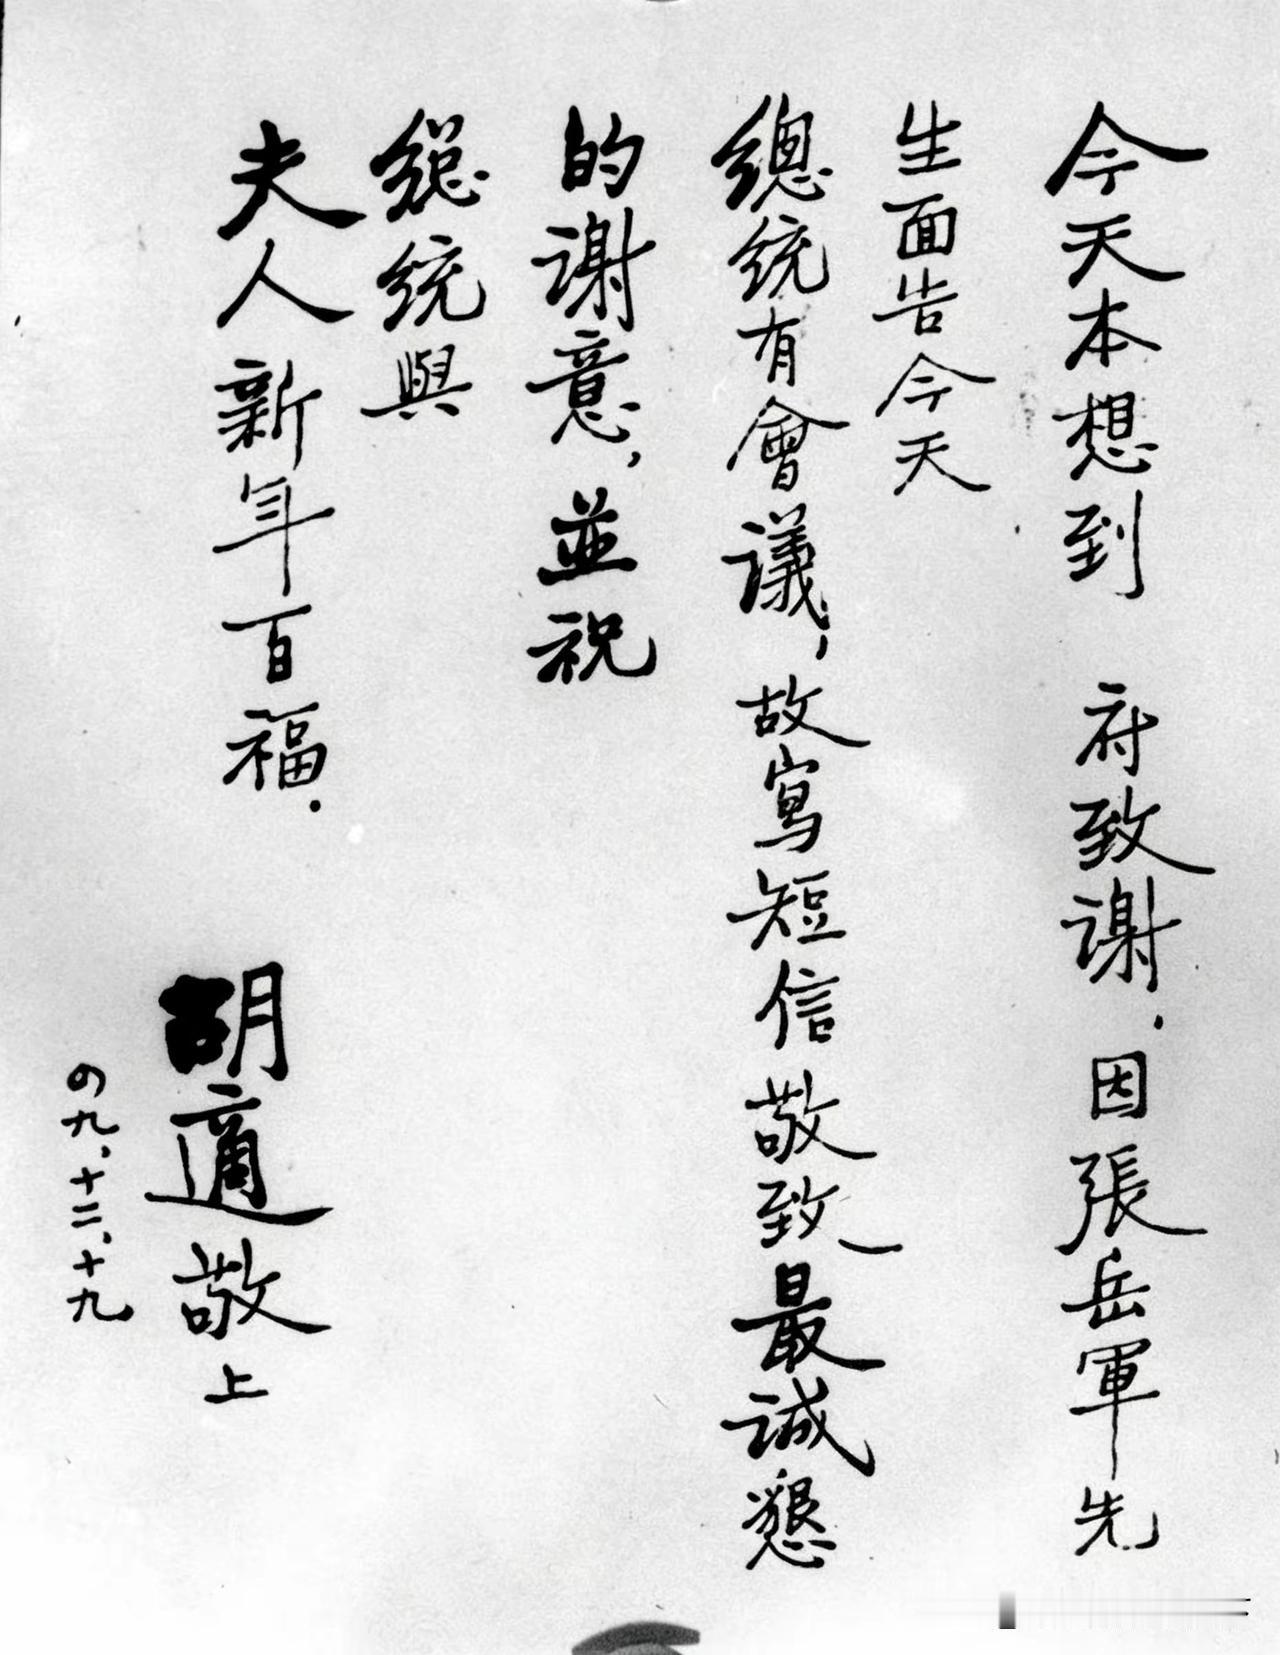 今天本想到　府致谢．因張岳軍先
生面告今天
總統有會議，故寫短信敬致最誠懇
的谢意，並祝
總統與
夫人新年百福．
胡適敬上
四九、十二、十九